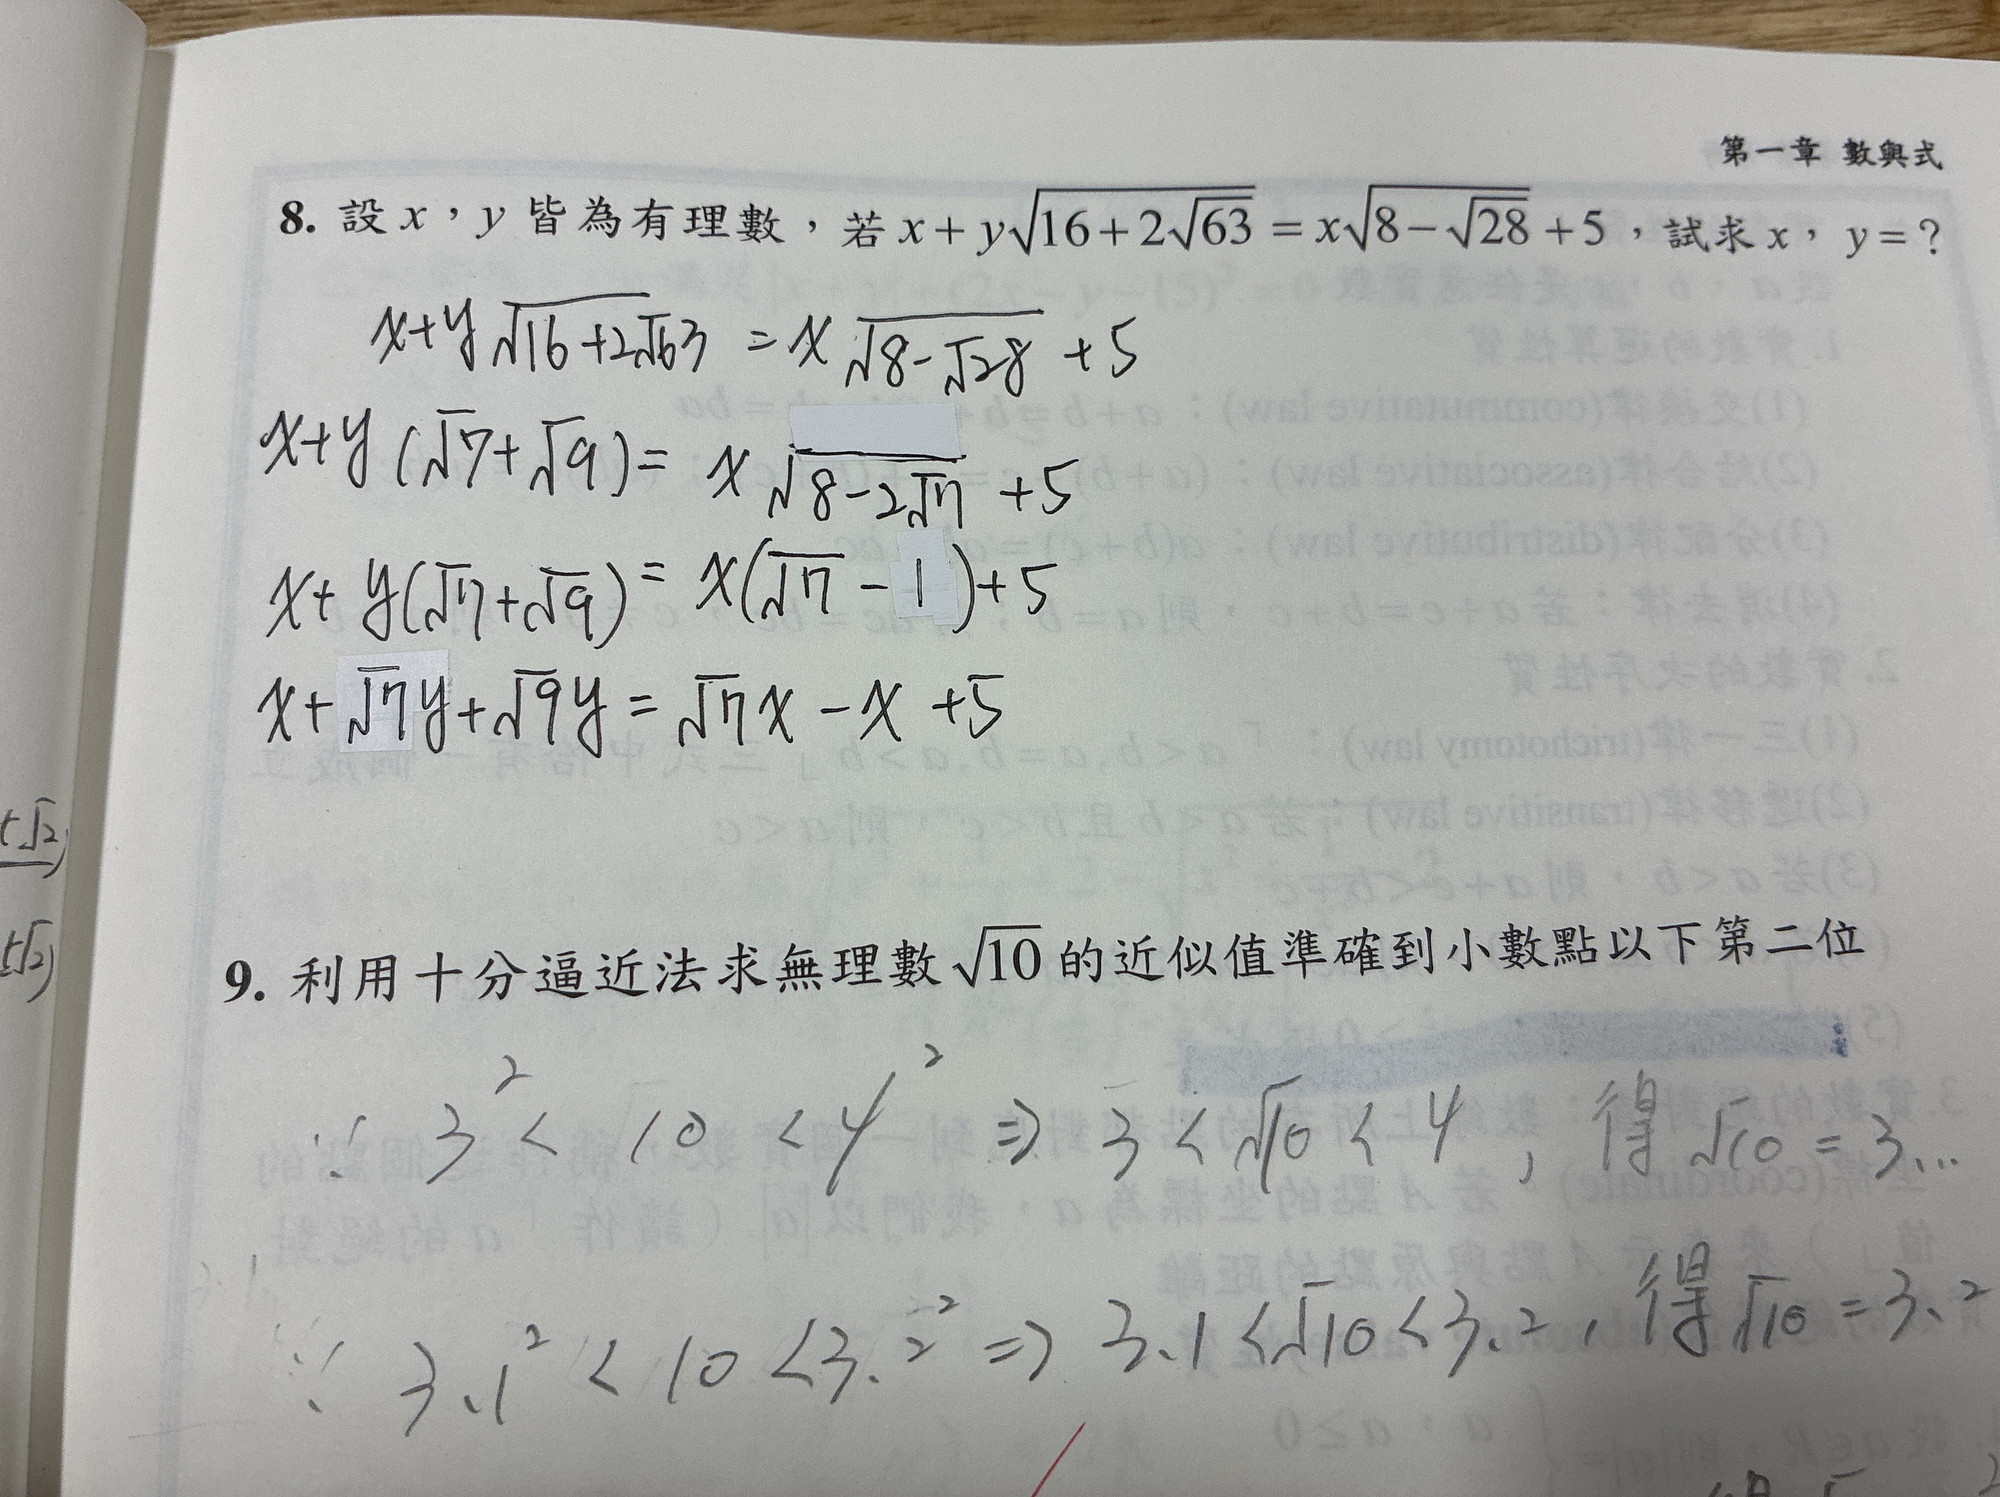 第一章 數與式
8. 設 x，y 皆為有理數，若 x+y√(16+2√63) = x√(8−√28) +5，試求 x， y=？
x+y√(16+2√63) = x√(8−√28) +5
x+y(√7+√9) = x√(8−2√7) +5
x+y(√7+√9) = x(√7−1)+5
x+√7y+√9y = √7x−x+5
5√2)
5√2)
9. 利用十分逼近法求無理數√10的近似值準確到小數點以下第二位
∵ 3² < 10 < 4² ⇒ 3 < √10 < 4，得√10 = 3...
∵ 3.1² < 10 < 3.2² ⇒ 3.1 < √10 < 3.2，得√10 = 3.²